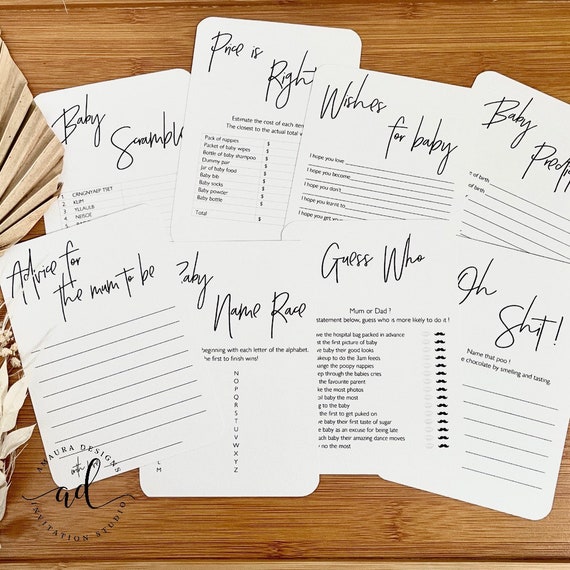 Baby
Scramble
1 CRNGNYAEP TSET
2 KLIM
3 YLLAULB
4 NEISOE
Price is
Right
Estimate the cost of each item
The closest to the actual total
Pack of nappies $
Packet of baby wipes $
Bottle of baby shampoo $
Dummy pair $
Jar of baby food $
Baby bib $
Baby socks $
Baby powder $
Baby bottle $
Total $
Wishes
for baby
I hope you love
I hope you become
I hope you don't
I hope you learn to
I hope you get
Baby
of birth
of birth
Advice for
the mum to be
Baby
Name Race
beginning with each letter of the alphabet.
The first to finish wins!
N
O
P
Q
R
S
T
U
V
W
X
Y
Z
L
M
Guess Who
Mum or Dad ?
statement below, guess who is more likely to do it !
the hospital bag packed in advance
the first picture of baby
baby their good looks
wakeup to do the 3am feeds
change the poopy nappies
through the babies cries
the favourite parent
the most photos
baby the most
to the baby
the first to get puked on
baby their first taste of sugar
baby as an excuse for being late
baby their amazing dance moves
no the most
Oh
Shit!
Name that poo !
chocolate by smelling and tasting.
AMAURA DESIGNS
ad
INVITATION STUDIO